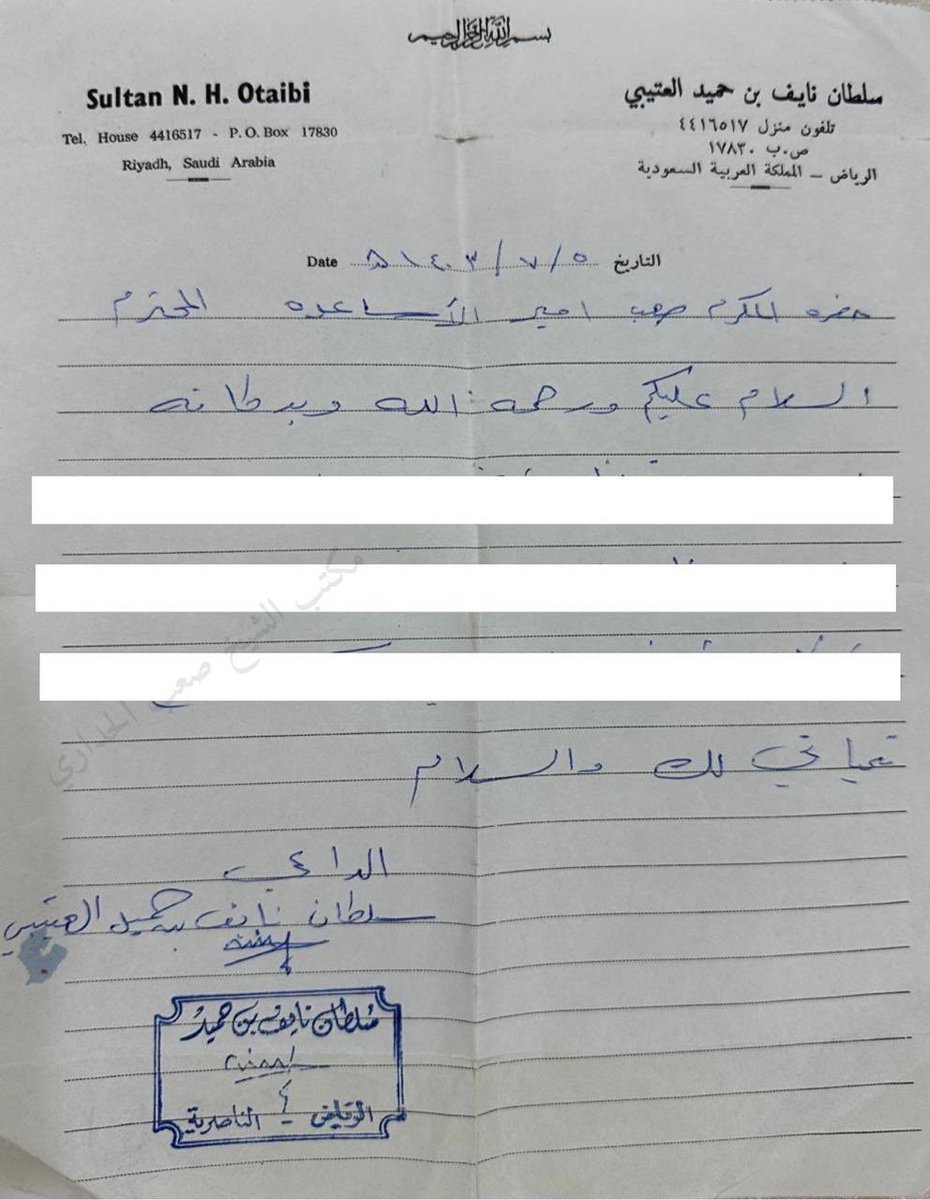 بسم الله الرحمن الرحيم
Sultan N. H. Otaibi
Tel. House 4416517 - P. O. Box 17830
Riyadh, Saudi Arabia
سلطان نايف بن حميد العتيبي
تلفون منزل ٤٤١٦٥١٧
ص.ب ١٧٨٣٠
الرياض – المملكة العربية السعودية
Date ٥/٧/١٤٠٣هـ التاريخ
حضره المكرم صعب امير الأساعده المحترم
السلام عليكم ورحمه الله وبركاته
مكتب الشيخ صعب الحداري
تحياتي لك والسلام
الداعي
سلطان نايف بن حميد العتيبي
سلطان نايف بن حميد
الرياض - الناصرية